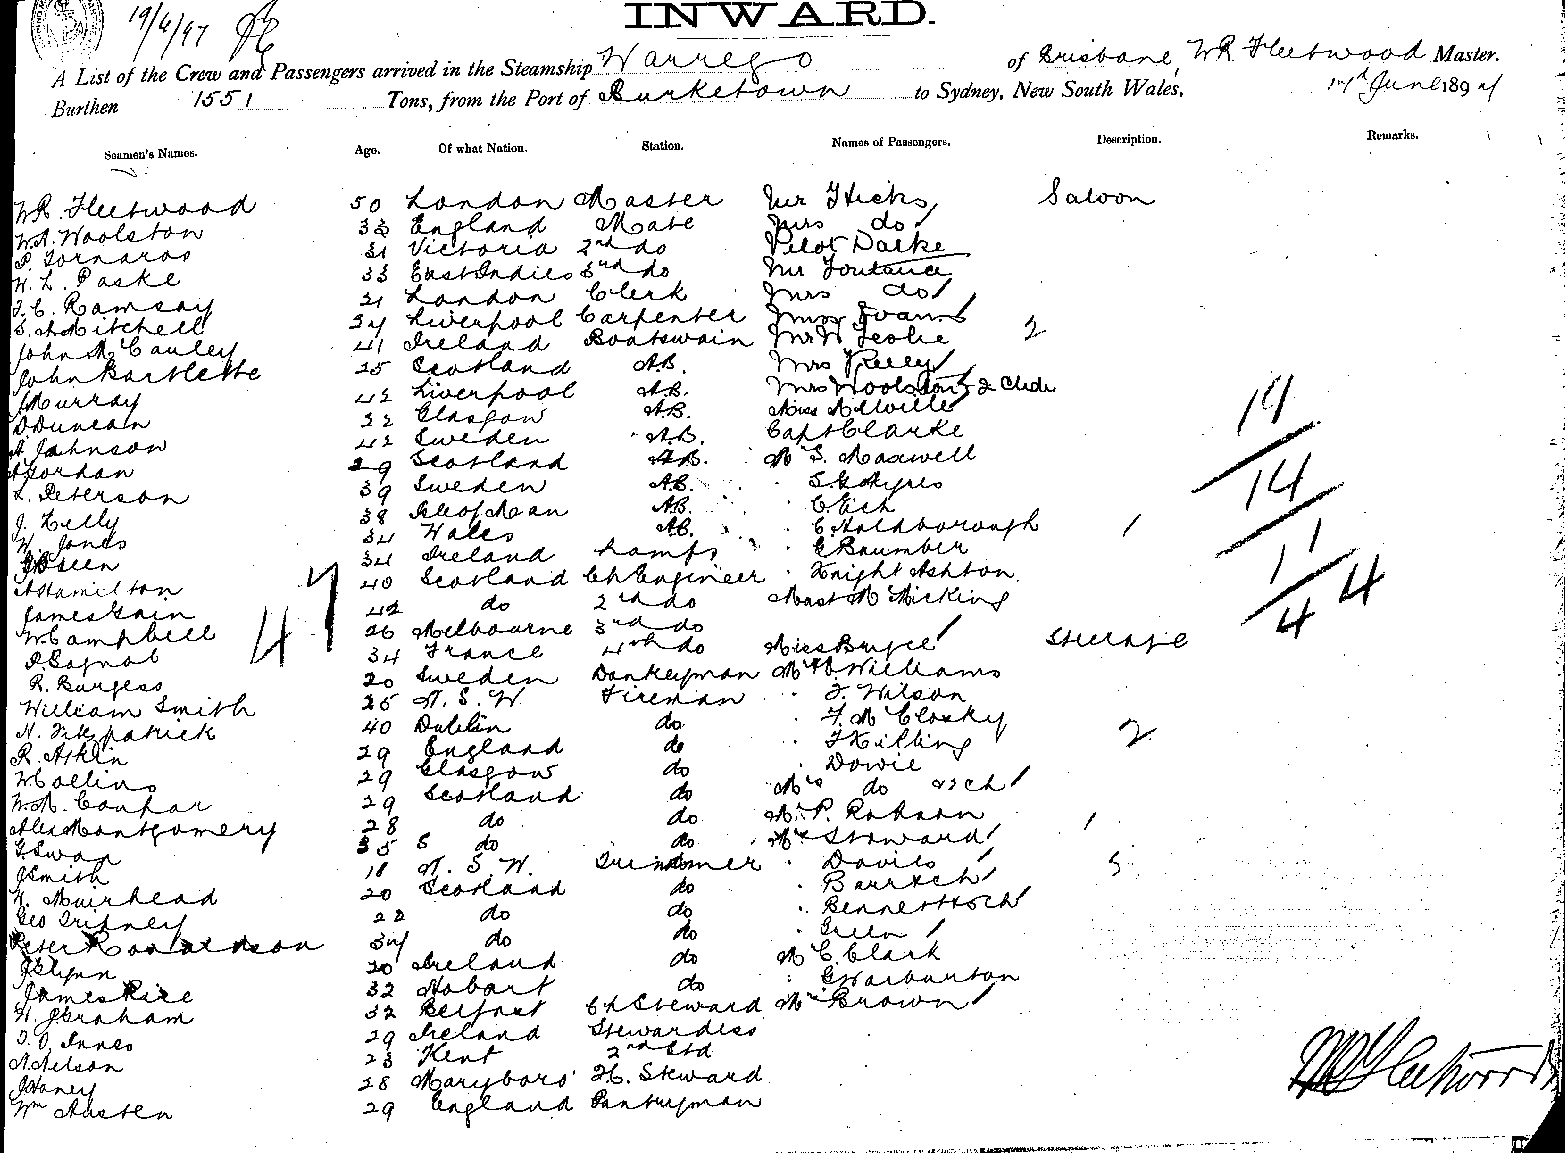 INWARD.
19/6/97
A List of the Crew and Passengers arrived in the Steamship Warrego of Brisbane, WR Fleetwood Master.
Burthen 1551 Tons, from the Port of Burketown to Sydney, New South Wales, 17th June 1897
Seamen's Names. Age. Of what Nation. Station. Names of Passengers. Description. Remarks.
WR. Fleetwood 50 London Master Mr Hicks Saloon
W.A. Woolston 33 England Mate Mrs do
P. Tornaros 31 Victoria 2nd do Pilot
H. L. Paske 33 East Indies 3rd do Mr
J. C. Ramsay 21 London Clerk Mrs do
S. A Mitchell 34 Liverpool Carpenter Miss
John McCauley 41 Ireland Boatswain Mr W Leslie 2
John Bartlette 25 Scotland A.B. Mrs Kelly
J Murray 42 Liverpool A.B. Mrs Woolston & 2 Chdn
D Duncan 32 Glasgow A.B. Miss Melville
A Johnson 42 Sweden A.B. Capt Clarke
A Jordan 29 Scotland A.B. Mr S. Maxwell
L. Peterson 39 Sweden A.B. S. G. Ayres
J. Kelly 38 Isle of Man A.B. C.
W. Jones 34 Wales A.B. C. Holdborough 1
34 Ireland Lamps E Baumber
A Hamilton 40 Scotland Ch Engineer Knight Ashton
James Gain 42 do 2nd do Mast McMicking
W. Campbell 26 Melbourne 3rd do
34 France 4th do Miss Bryce Steerage
R. Burgess 20 Sweden Donkeyman Mr Williams
William Smith 25 N. S. W. Fireman J. Wilson
N. Fitzpatrick 40 Dublin do J. McClosky
R. Askin 29 England do J Killing 2
W Collins 29 Glasgow do Dowie
W. M. Conhar 29 Scotland do Mrs do & 2 ch
Alex Montgomery 28 do do Mr P. Robson
G. Swan 35 S do do Mrs Stoward 1
J Smith 18 N. S. W. Trimmer Davies 5
N. Muirhead 20 Scotland do Barr & ch
Geo Tridney 22 do do Bennett & ch
Peter 34 do do Green
J Glynn 20 Ireland do Mr C. Clark
James Rice 32 Hobart do G Warburton
H. J Graham 32 Belfast Ch Steward Mrs Brown
T. O. Innes 29 Ireland Stewardess
A Nelson 23 Kent 2nd Std
J Honey 28 Maryboro' F. C. Steward
Wm Austen 29 England Pantryman
47
19
14
11
4 4
WR Fleetwood